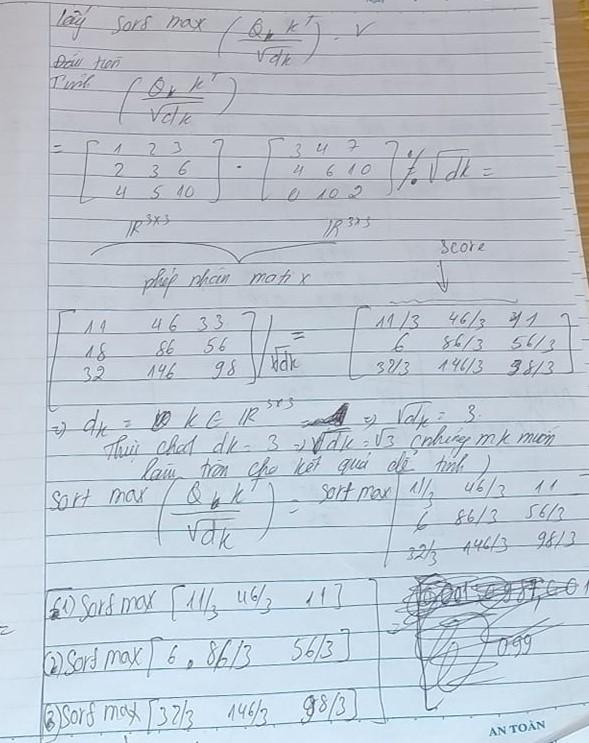 lấy Sorf max (Q_k K^T / √dk) . V
Đầu tiên
Tính (Q_k K^T / √dk)
= [ 1 2 3 ; 2 3 6 ; 4 5 10 ] . [ 3 4 7 ; 4 6 10 ; 0 10 2 ] % √dk =
R^3x3 R^3x3 Score
phép nhân matrix
[ 11 46 33 ; 18 86 56 ; 32 146 98 ] / √dk = [ 11/3 46/3 11 ; 6 86/3 56/3 ; 32/3 146/3 98/3 ]
=> dk = K ∈ R^3x3 => √dk = 3.
Thực chất dk = 3 => √dk = √3 (nhưng mk muốn
làm tròn cho kết quả dễ tính)
Sorf max (Q_k K^T / √dk) = Sorf max [ 11/3 46/3 11 ; 6 86/3 56/3 ; 32/3 146/3 98/3
(1) Sorf max [ 11/3 46/3 11 ]
(2) Sorf max [ 6 . 86/3 56/3 ] = 0.99
(3) Sorf max [ 32/3 146/3 98/3 ]
AN TOÀN